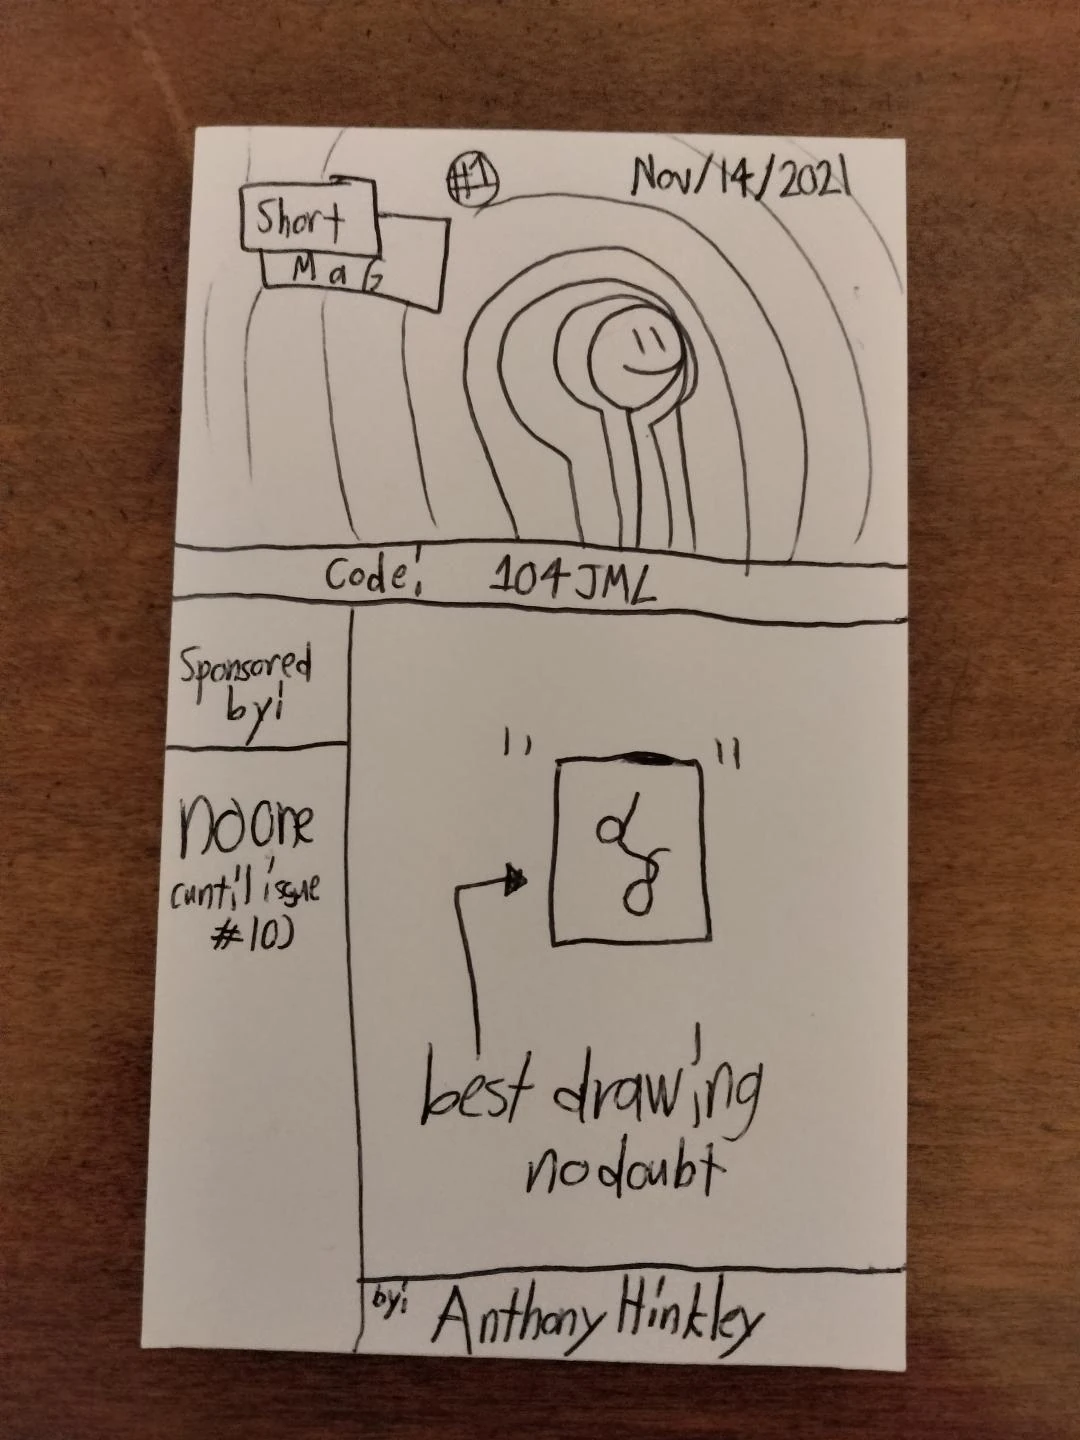 Short
MaG
#1
Nov/14/2021
Code: 104JML
Sponsored
by:
no one
(until issue
#10)
" "
best drawing
no doubt
by: Anthony Hinkley